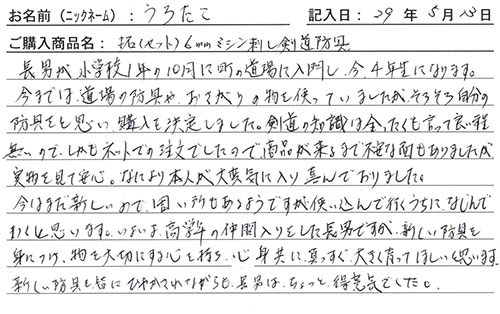 お名前（ニックネーム）：うろたこ 記入日：29年5月13日
ご購入商品名：拓(セット)6mmミシン刺し剣道防具
長男が小学校1年の10月に町の道場に入門し、今、4年生になります。
今までは、道場の防具や、おさがりの物を使っていましたが、そろそろ自分の
防具をと思い、購入を決定しました。剣道の知識は全ったくも言って良い程
無いので、しかもネットでの注文でしたので、商品が来るまで不安な面もありましたが
実物を見て安心。なにより本人が大変気に入り喜んでおりました。
今はまだ新しいので、固い所もあるようですが使い込んで行くうちに、なじんで
行くと思います。いよいよ、高学年の仲間入りをした長男ですが、新しい防具を
身につけ、物を大切にする心を持ち、心身共に、真っすぐ、大きく育ってほしいと思います。
新しい防具を皆にひやかされながらも、長男は、ちょっと、得意気でした。